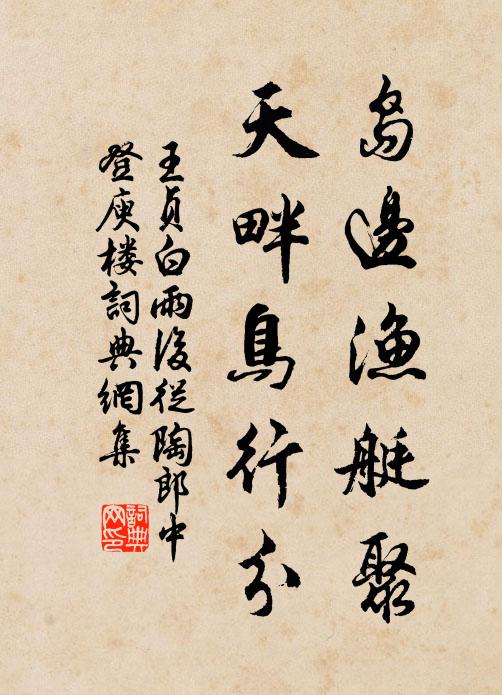 島邊漁艇聚
天畔鳥行分
王貞白雨後從陶郎中
登庾樓詞典網集
詞典
网印